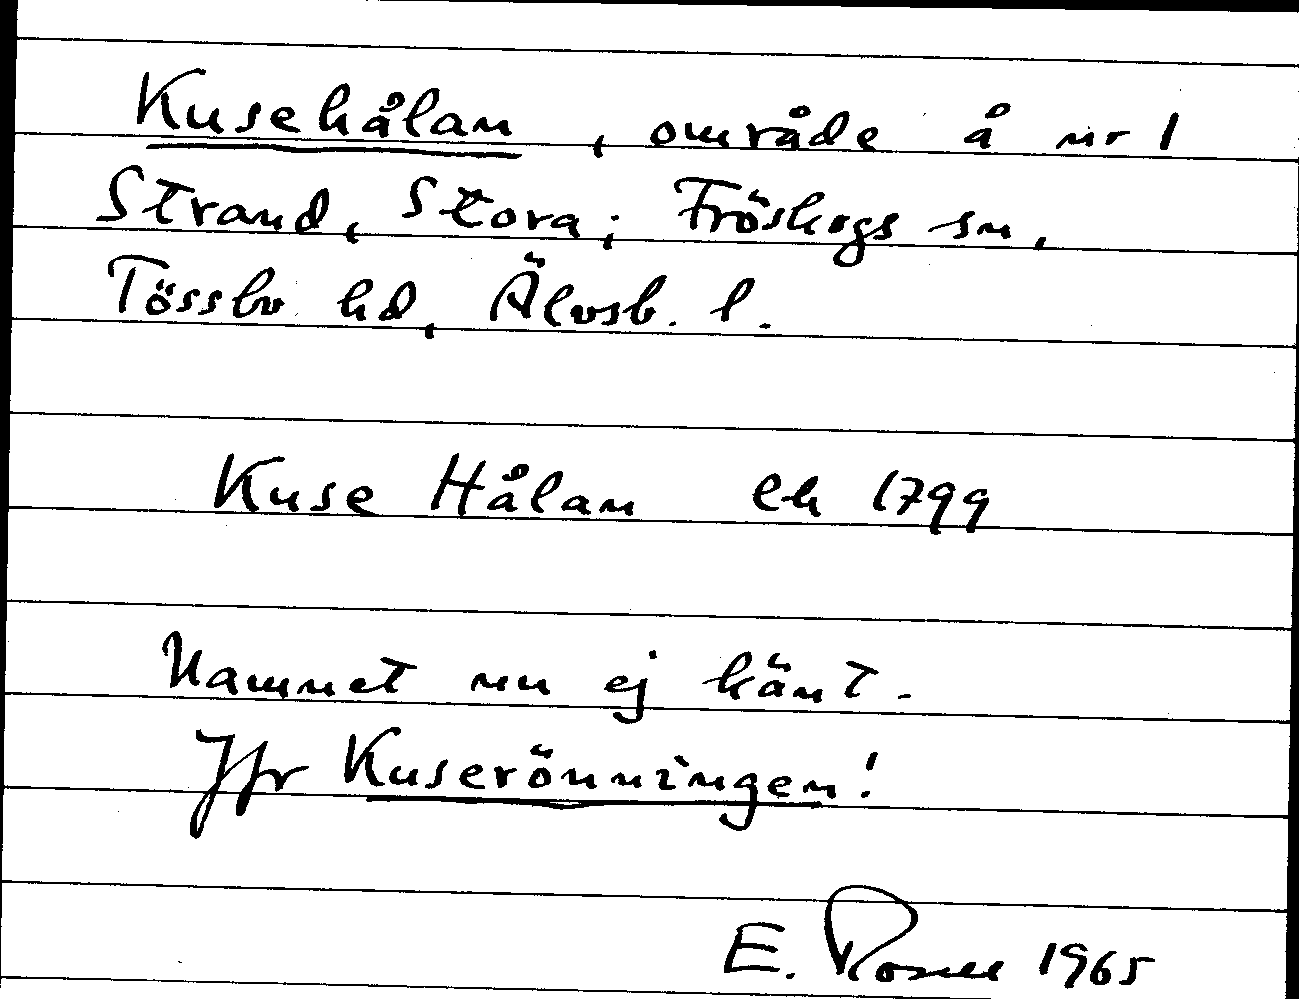 Kusehålan, område å nr 1
Strand, Stora; Fröskogs sn,
Tössbo hd, Älvsb. l.
Kuse Hålan ch 1799
Namnet nu ej känt.
Jfr Kuserönningen!
E. 1965